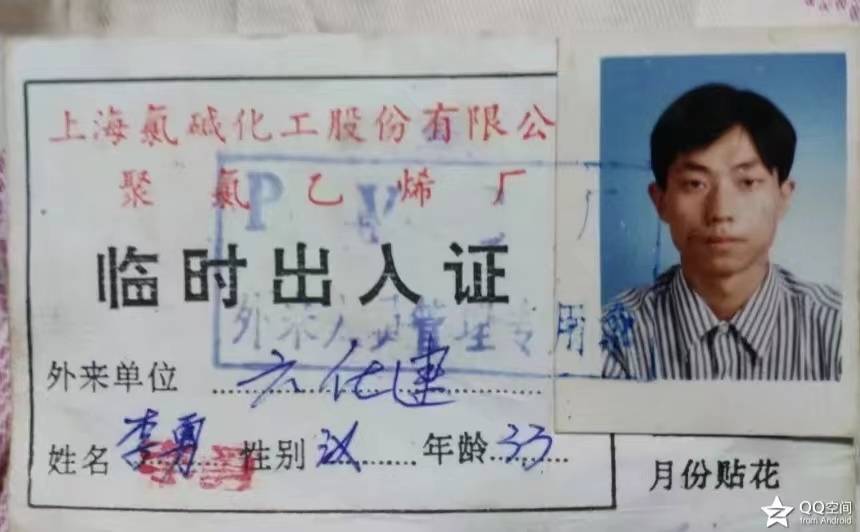 上海氯碱化工股份有限公
聚氯乙烯厂
PV
临时出入证
外来人员管理专用章
外来单位 六化建
姓名 李勇 性别 汉 年龄 33
月份贴花
QQ空间
from Android